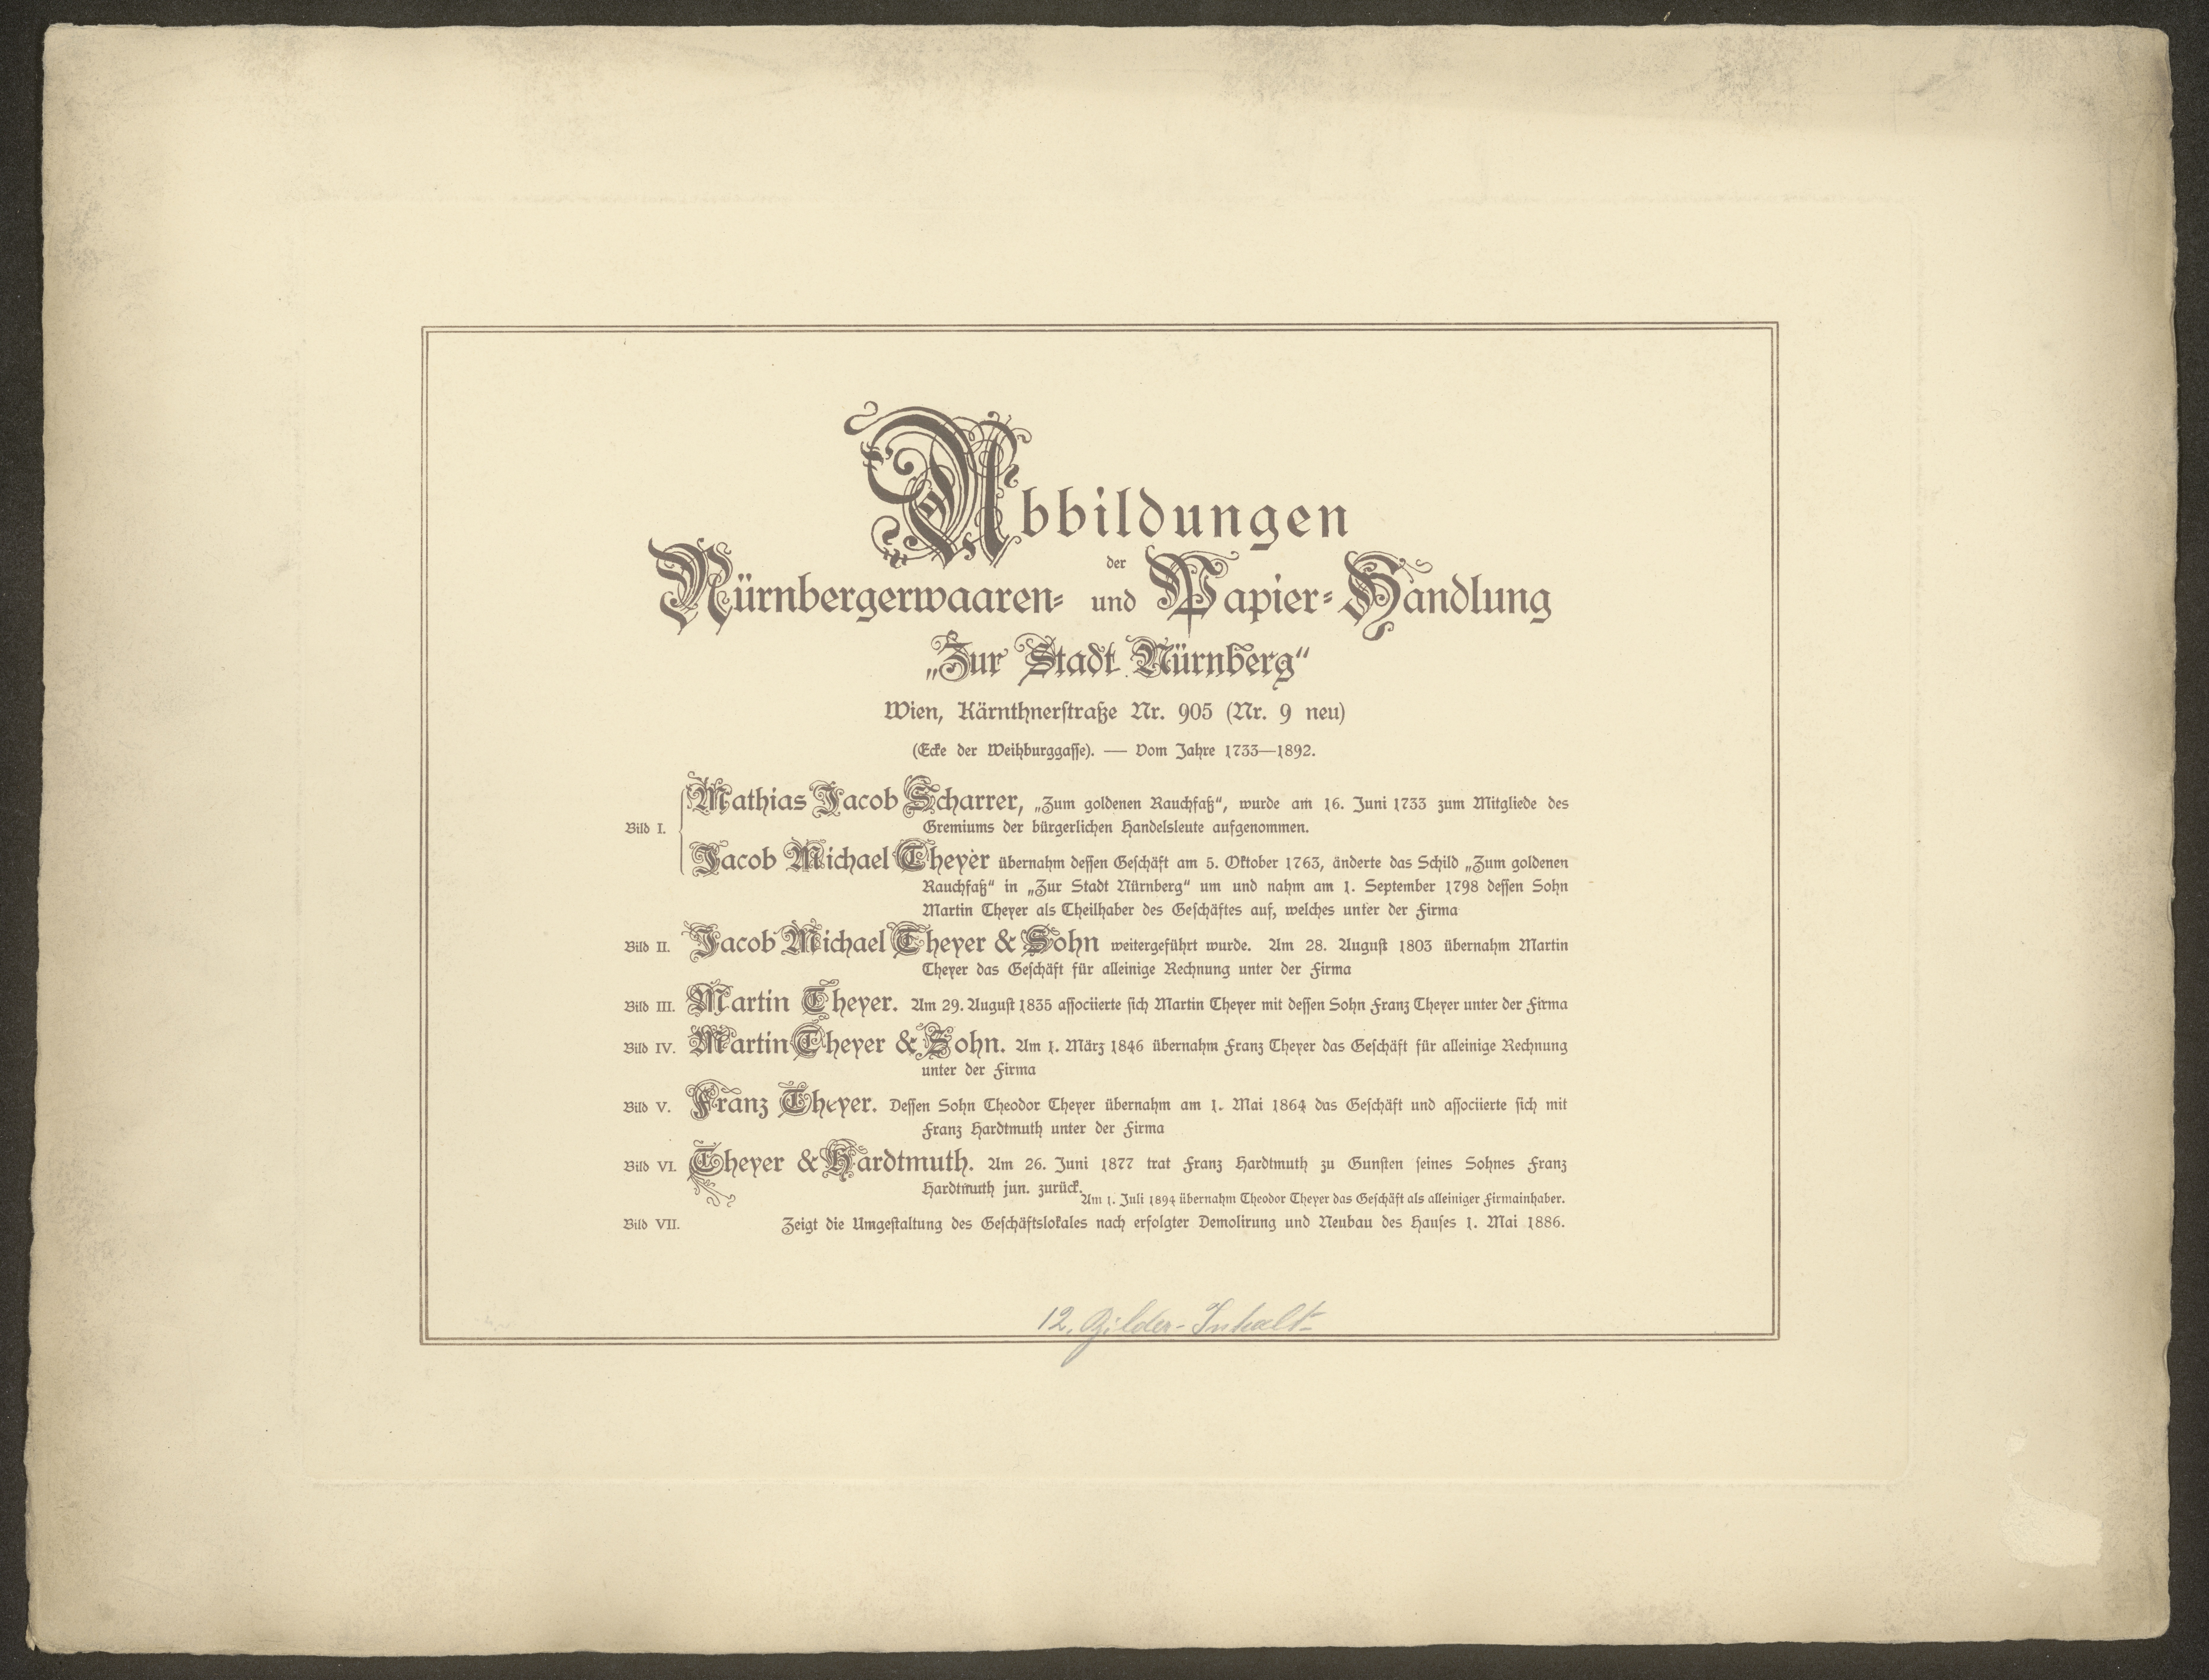 Abbildungen
der
Nürnbergerwaaren- und Papier-Handlung
„Zur Stadt Nürnberg“
Wien, Kärnthnerstraße Nr. 905 (Nr. 9 neu)
(Ecke der Weihburggasse). — Vom Jahre 1733—1892.
Mathias Jacob Scharrer, „Zum goldenen Rauchfaß“, wurde am 16. Juni 1733 zum Mitgliede des
Bild I. Gremiums der bürgerlichen Handelsleute aufgenommen.
Jacob Michael Theyer übernahm dessen Geschäft am 5. Oktober 1763, änderte das Schild „Zum goldenen
Rauchfaß“ in „Zur Stadt Nürnberg“ um und nahm am 1. September 1798 dessen Sohn
Martin Theyer als Theilhaber des Geschäftes auf, welches unter der Firma
Bild II. Jacob Michael Theyer & Sohn weitergeführt wurde. Am 28. August 1803 übernahm Martin
Theyer das Geschäft für alleinige Rechnung unter der Firma
Bild III. Martin Theyer. Am 29. August 1835 associierte sich Martin Theyer mit dessen Sohn Franz Theyer unter der Firma
Bild IV. Martin Theyer & Sohn. Am 1. März 1846 übernahm Franz Theyer das Geschäft für alleinige Rechnung
unter der Firma
Bild V. Franz Theyer. Dessen Sohn Theodor Theyer übernahm am 1. Mai 1864 das Geschäft und associierte sich mit
Franz Hardtmuth unter der Firma
Bild VI. Theyer & Hardtmuth. Am 26. Juni 1877 trat Franz Hardtmuth zu Gunsten seines Sohnes Franz
Hardtmuth jun. zurück.
Am 1. Juli 1894 übernahm Theodor Theyer das Geschäft als alleiniger Firmainhaber.
Bild VII. Zeigt die Umgestaltung des Geschäftslokales nach erfolgter Demolirung und Neubau des Hauses 1. Mai 1886.
12. Bilder-Inhalt